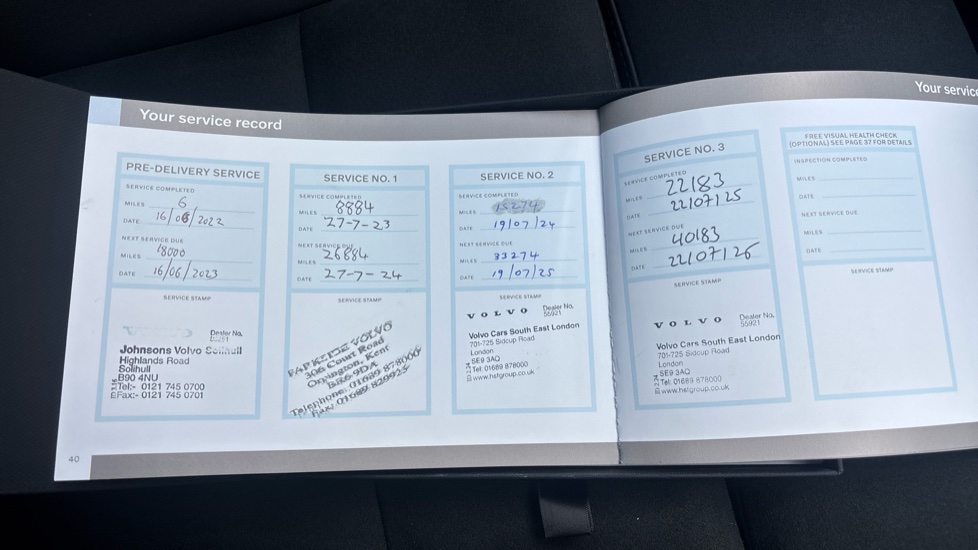 Your service record
PRE-DELIVERY SERVICE
SERVICE COMPLETED
MILES 6
DATE 16/06/2022
NEXT SERVICE DUE
MILES 18000
DATE 16/06/2023
SERVICE STAMP
Dealer No.
Johnsons Volvo Solihull
Highlands Road
Solihull
B90 4NU
Tel:- 0121 745 0700
Fax:- 0121 745 0701
40
SERVICE NO. 1
SERVICE COMPLETED
MILES 8884
DATE 27-7-23
NEXT SERVICE DUE
MILES 26884
DATE 27-7-24
SERVICE STAMP
PARKSIDE VOLVO
306 Court Road
Orpington, Kent
BR6 9DA
Telephone: 01689 878000
Fax: 01689 829925
SERVICE NO. 2
SERVICE COMPLETED
MILES 15274
DATE 19/07/24
NEXT SERVICE DUE
MILES 33274
DATE 19/07/25
SERVICE STAMP
VOLVO Dealer No.
55921
Volvo Cars South East London
701-725 Sidcup Road
London
SE9 3AQ
Tel: 01689 878000
www.hstgroup.co.uk
Your service
SERVICE NO. 3
SERVICE COMPLETED
MILES 22183
DATE 22/07/25
NEXT SERVICE DUE
MILES 40183
DATE 22/07/26
SERVICE STAMP
VOLVO Dealer No.
55921
Volvo Cars South East London
701-725 Sidcup Road
London
SE9 3AQ
Tel: 01689 878000
www.hstgroup.co.uk
FREE VISUAL HEALTH CHECK
(OPTIONAL) SEE PAGE 37 FOR DETAILS
INSPECTION COMPLETED
MILES
DATE
NEXT SERVICE DUE
MILES
DATE
SERVICE STAMP